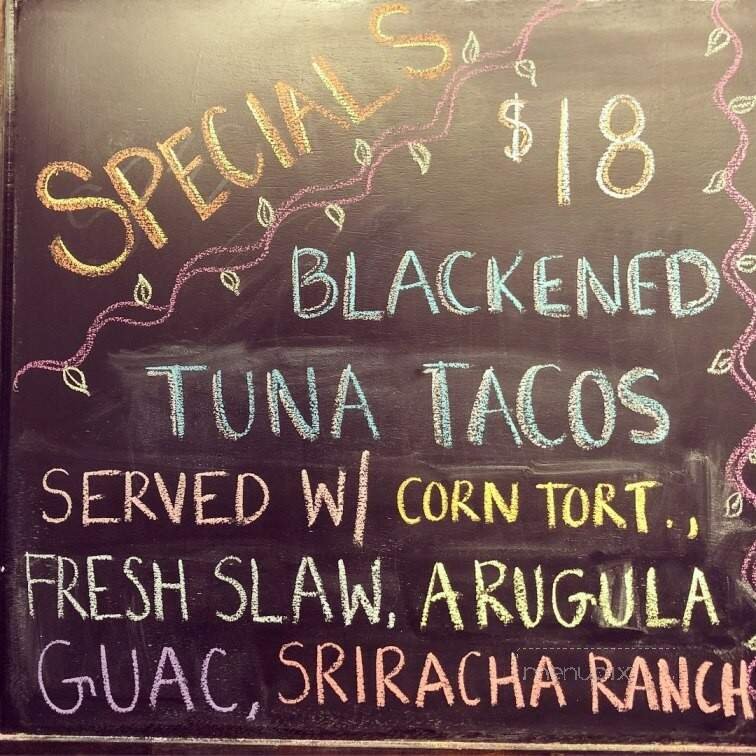 SPECIALS
$18
BLACKENED
TUNA TACOS
SERVED W/ CORN TORT.,
FRESH SLAW, ARUGULA
GUAC, SRIRACHA RANCH